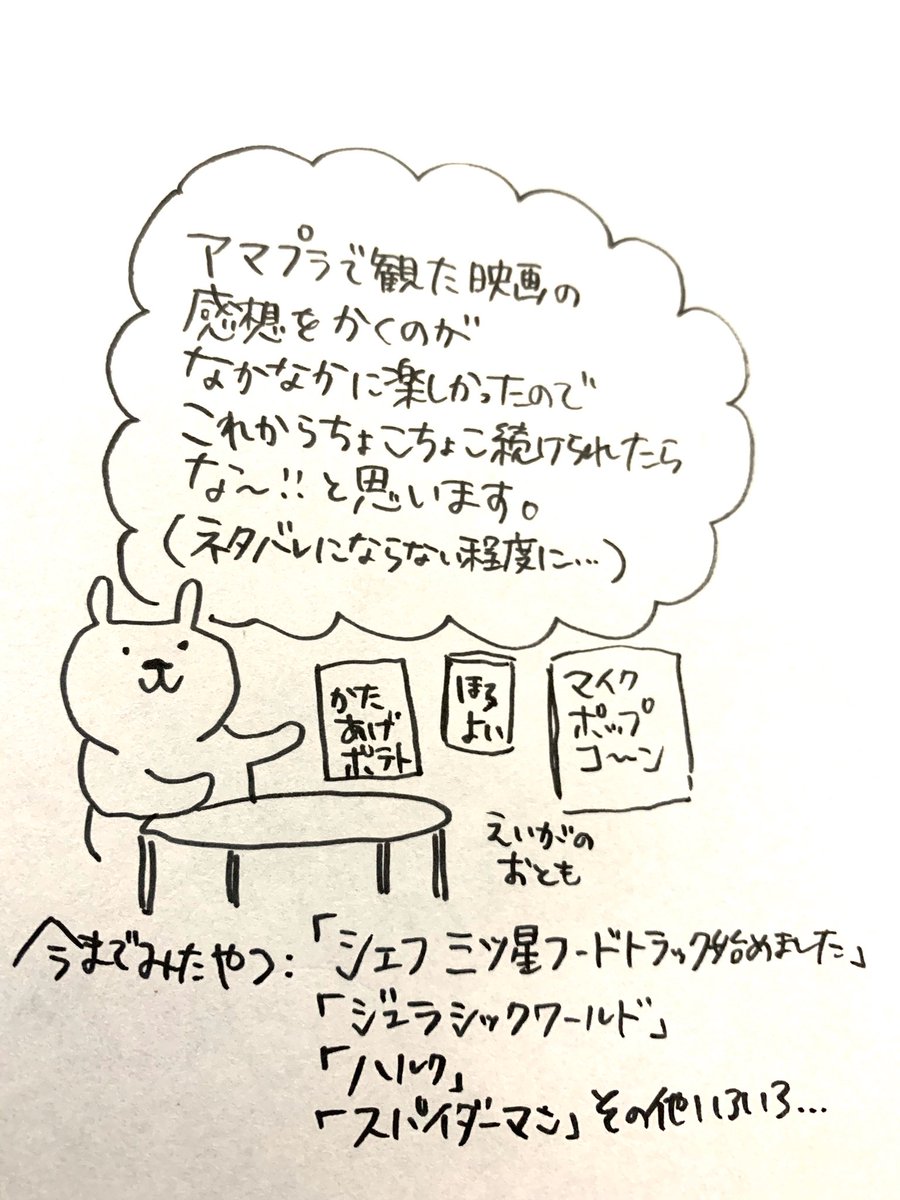 アマプラで観た映画の
感想をかくのが
なかなかに楽しかったので
これからちょこちょこ続けられたら
な〜!!と思います。
(ネタバレにならない程度に…)
かた
あげ
ポテト
ほろ
よい
マイク
ポップ
コ〜ン
えいがの
おとも
今までみたやつ:「シェフ 三ツ星フードトラック始めました」
「ジュラシックワールド」
「ハルク」
「スパイダーマン」その他いろいろ…